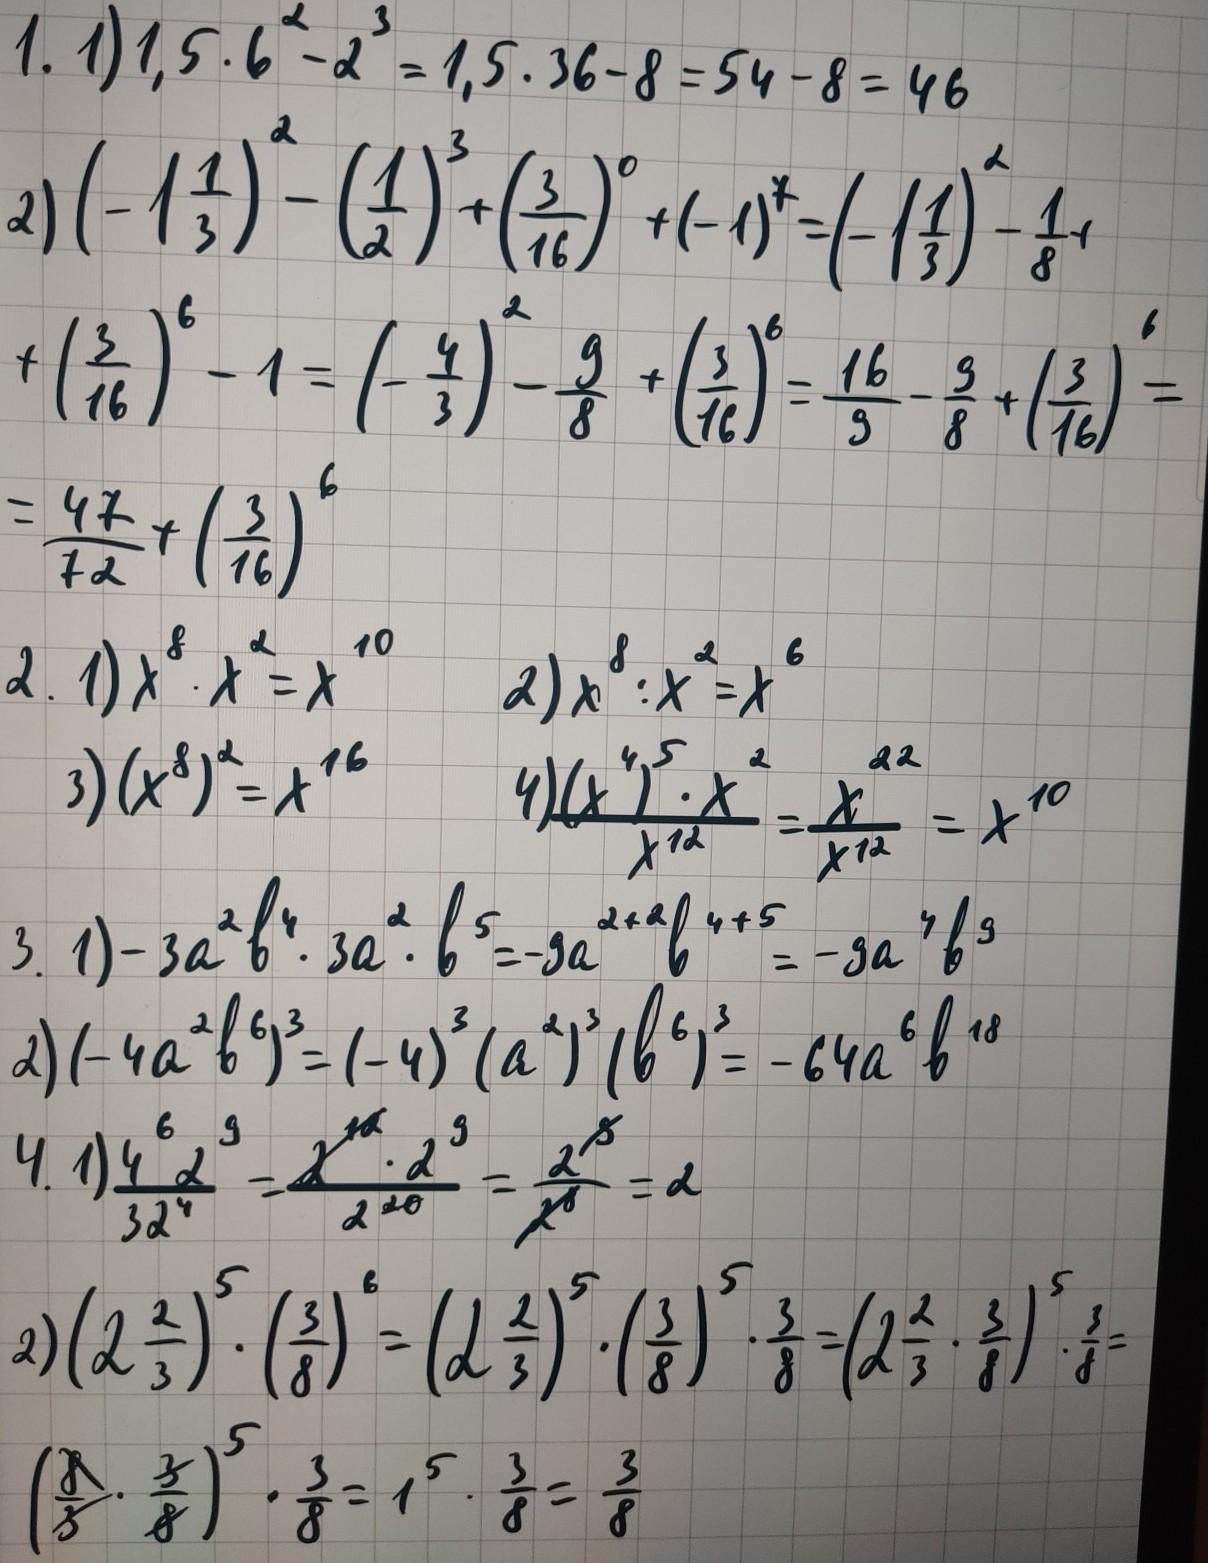 1. 1) 1,5 · 6² - 2³ = 1,5 · 36 - 8 = 54 - 8 = 46
2) (-1 1/3)² - (1/2)³ + (3/16)⁰ + (-1)⁷ = (-1 1/3)² - 1/8 +
+ (3/16)⁶ - 1 = (-4/3)² - 9/8 + (3/16)⁶ = 16/9 - 9/8 + (3/16)⁶ =
= 47/72 + (3/16)⁶
2. 1) x⁸ · x² = x¹⁰ 2) x⁸ : x² = x⁶
3) (x⁸)² = x¹⁶ 4) (x⁴)⁵ · x² / x¹² = x²² / x¹² = x¹⁰
3. 1) -3a²b⁴ · 3a² · b⁵ = -9a²⁺²b⁴⁺⁵ = -9a⁴b⁹
2) (-4a²b⁶)³ = (-4)³ (a²)³ (b⁶)³ = -64a⁶b¹⁸
4. 1) 4⁶ 2⁹ / 32⁴ = 2¹² · 2⁹ / 2²⁰ = 2⁹ / 2⁸ = 2
2) (2 2/3)⁵ · (3/8)⁶ = (2 2/3)⁵ · (3/8)⁵ · 3/8 = (2 2/3 · 3/8)⁵ · 3/8 =
(8/3 · 3/8)⁵ · 3/8 = 1⁵ · 3/8 = 3/8